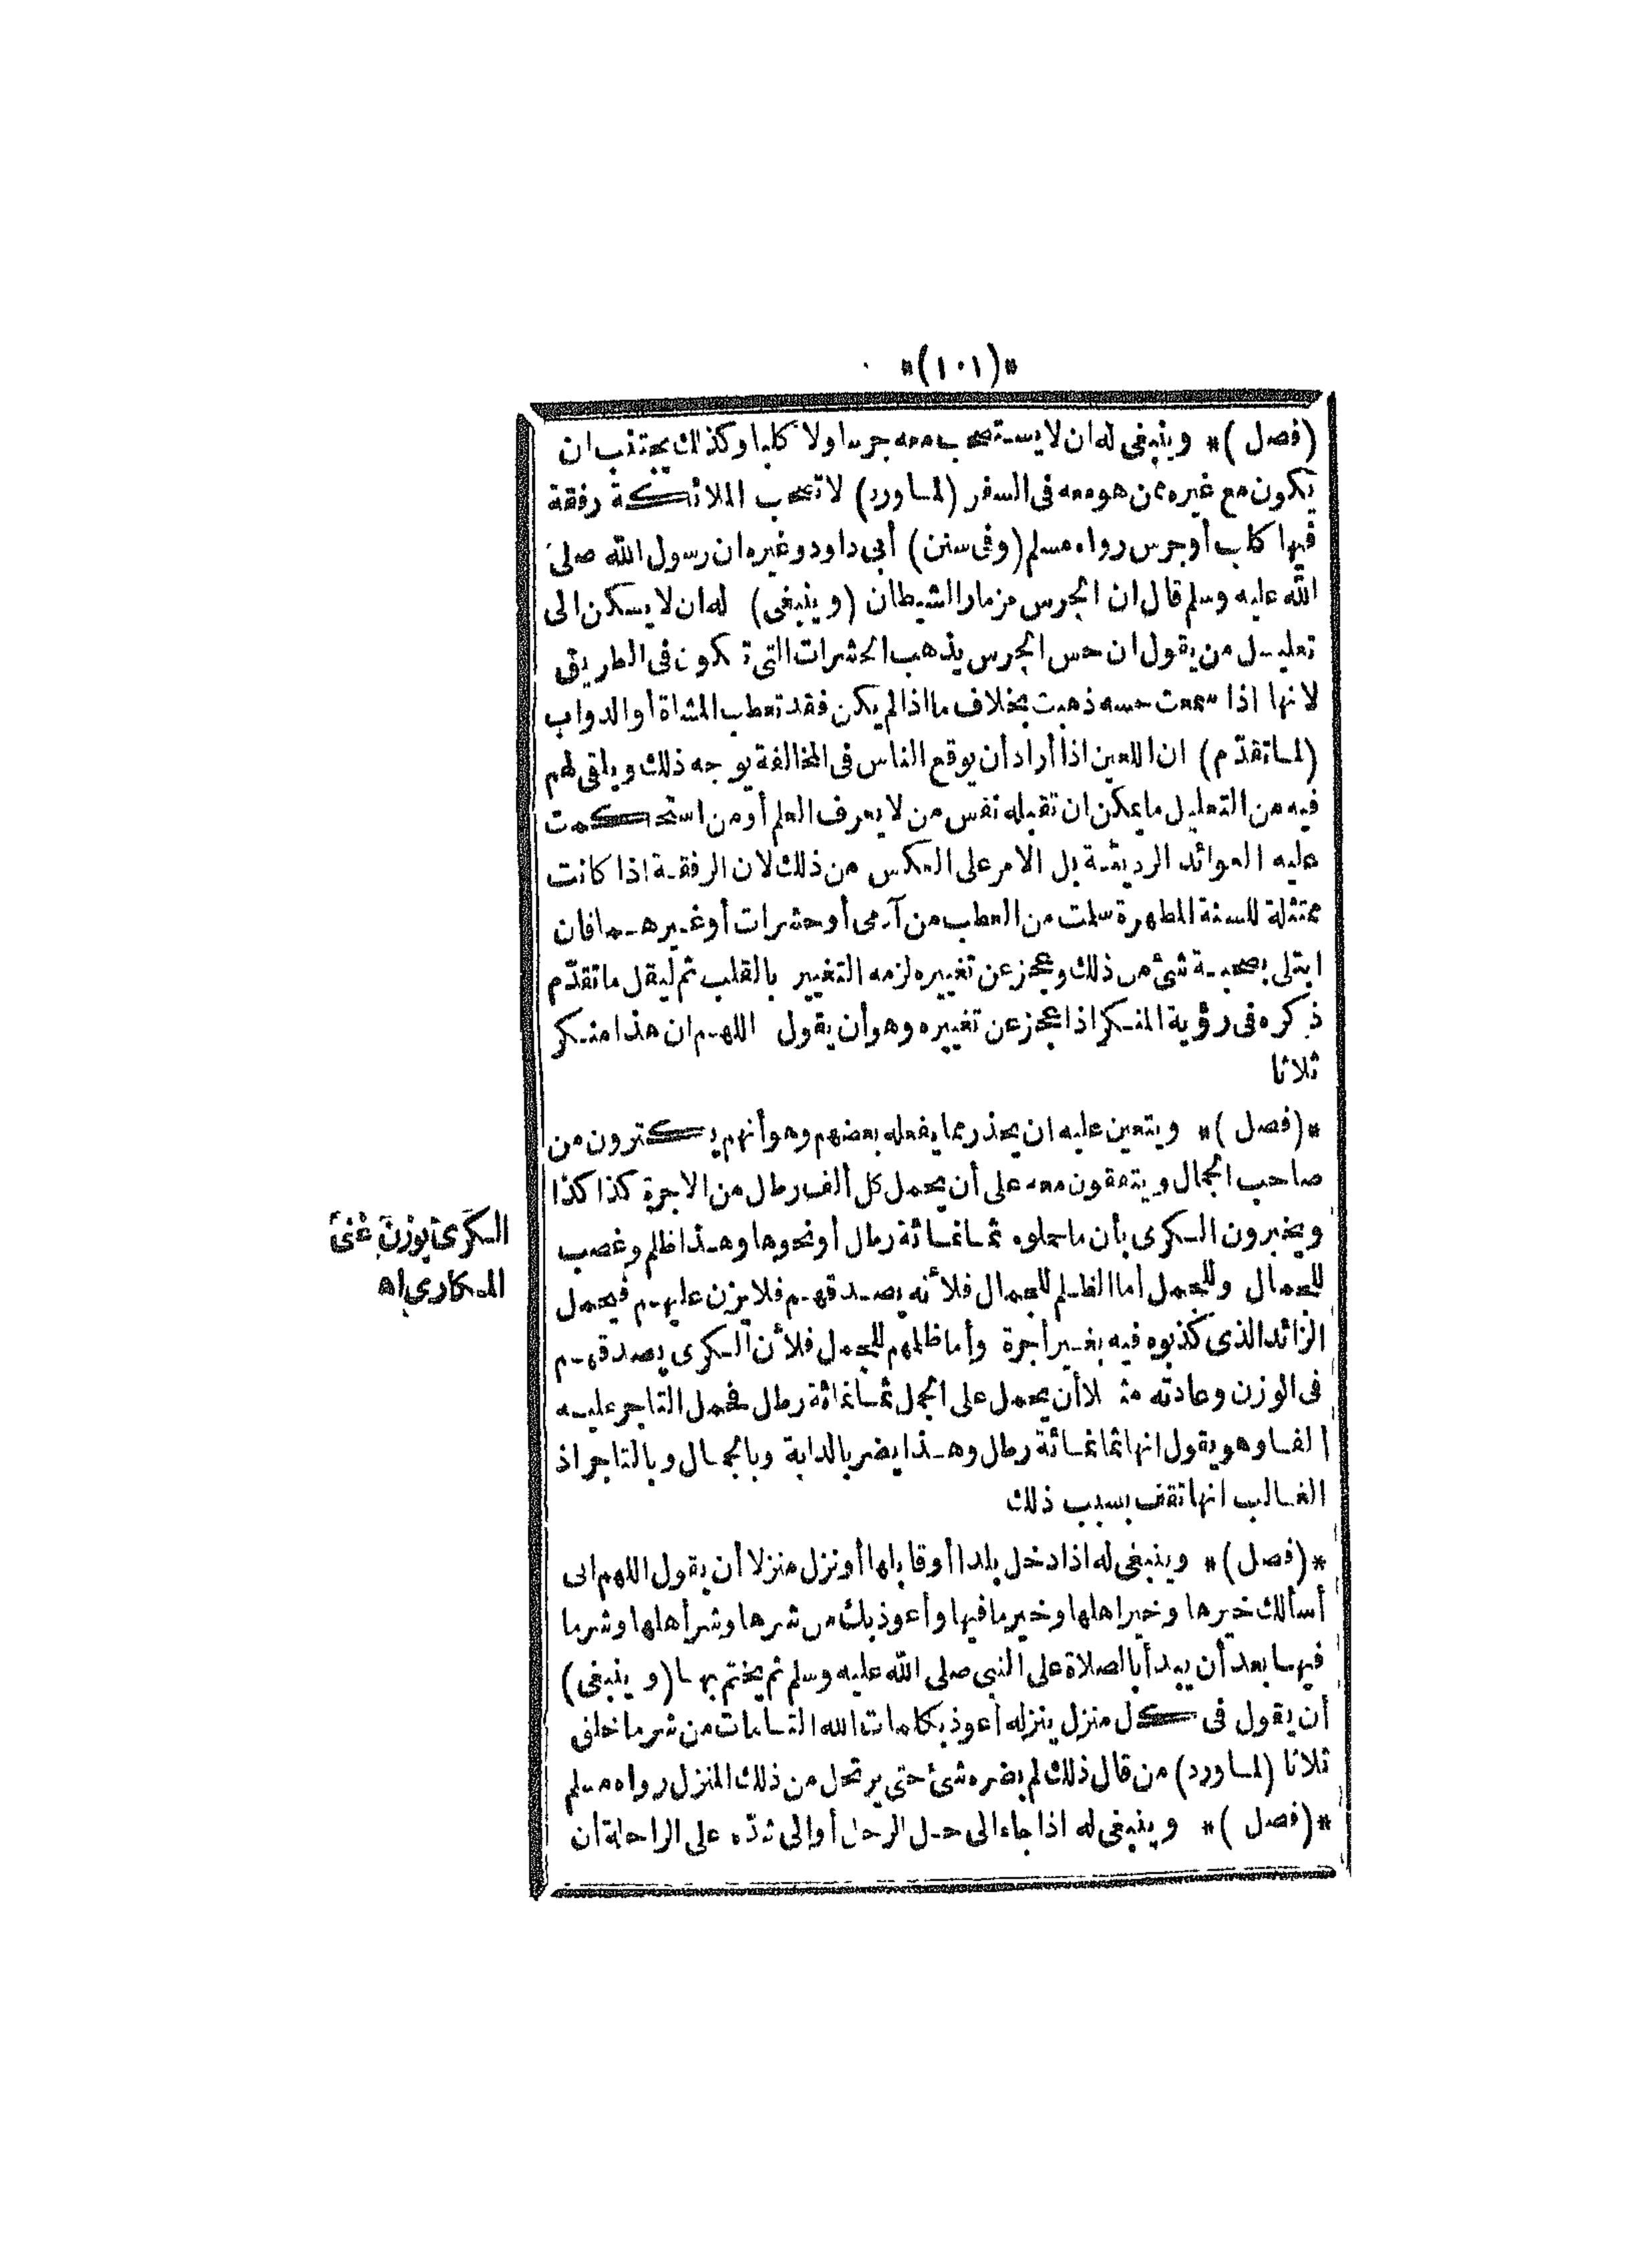 *(١٠١)*
(فصل)* وينبغى له ان لا يستصحب معه جرسا ولا كلبا وكذلك يجتنب ان
يكون مع غيره ممن هو معه فى السفر (لما ورد) لا تصحب الملائكة رفقة
فيها كلب أو جرس رواه مسلم (وفى سنن) أبى داود وغيره ان رسول الله صلى
الله عليه وسلم قال ان الجرس مزمار الشيطان (وينبغى) له ان لا يسكن الى
تعليل من يقول ان حس الجرس يذهب الحشرات التى تكون فى الطريق
لانها اذا سمعت حسه ذهبت بخلاف ما اذا لم يكن فقد تعطب المشاة أو الدواب
(لما تقدّم) ان اللعين اذا أراد أن يوقع الناس فى المخالفة يوجه ذلك ويلقى لهم
فيه من التعليل ما يمكن ان تقبله نفس من لا يعرف العلم أو من استحكمت
عليه العوائد الرديئة بل الامر على العكس من ذلك لان الرفقة اذا كانت
ممتثلة للسنة المطهرة سلمت من العطب من آدمى أو حشرات أو غيرهما فان
ابتلى بصحبة شئ من ذلك وعجز عن تغييره لزمه التغيير بالقلب ثم ليقل ما تقدّم
ذكره فى رؤية المنكر اذا عجز عن تغييره وهو أن يقول اللهم ان هذا منكر
ثلاثا
*(فصل)* ويتعين عليه ان يحذر مما يفعله بعضهم وهو أنهم يكترون من
صاحب الجمال ويتفقون معه على أن يحمل كل ألف رطل من الاجرة كذا كذا
ويخبرون الكرى بأن ما حملوه ثمانمائة رطل أو نحوها وهذا ظلم وغصب
للجمال وللجمل أما الظلم للجمال فلأنه يصدقهم فلا يزن عليهم فيحمل
الزائد الذى كذبوه فيه بغير أجرة وأما ظلمهم للجمل فلأن الكرى يصدقهم
فى الوزن وعادته مثلا أن يحمل على الجمل ثمانمائة رطل فحمل التاجر عليه
الفا وهو يقول انها ثمانمائة رطل وهذا يضر بالدابة وبالجمال وبالتاجر اذ
الغالب انها تقف بسبب ذلك
*(فصل)* وينبغى له اذا دخل بلدا أو قابلها أو نزل منزلا أن يقول اللهم انى
أسألك خيرها وخير اهلها وخير ما فيها وأعوذ بك من شرها وشر أهلها وشر ما
فيها بعد أن يبدأ بالصلاة على النبى صلى الله عليه وسلم ثم يختم بها (وينبغى)
أن يقول فى كل منزل ينزله أعوذ بكلمات الله التامات من شر ما خلق
ثلاثا (لما ورد) من قال ذلك لم يضره شئ حتى يرتحل من ذلك المنزل رواه مسلم
*(فصل)* وينبغى له اذا جاء الى حل الرحل أو الى شدّه على الراحلة أن
الكَرَىّ بِوَزْنِ غَنِىّ
المكارى اه